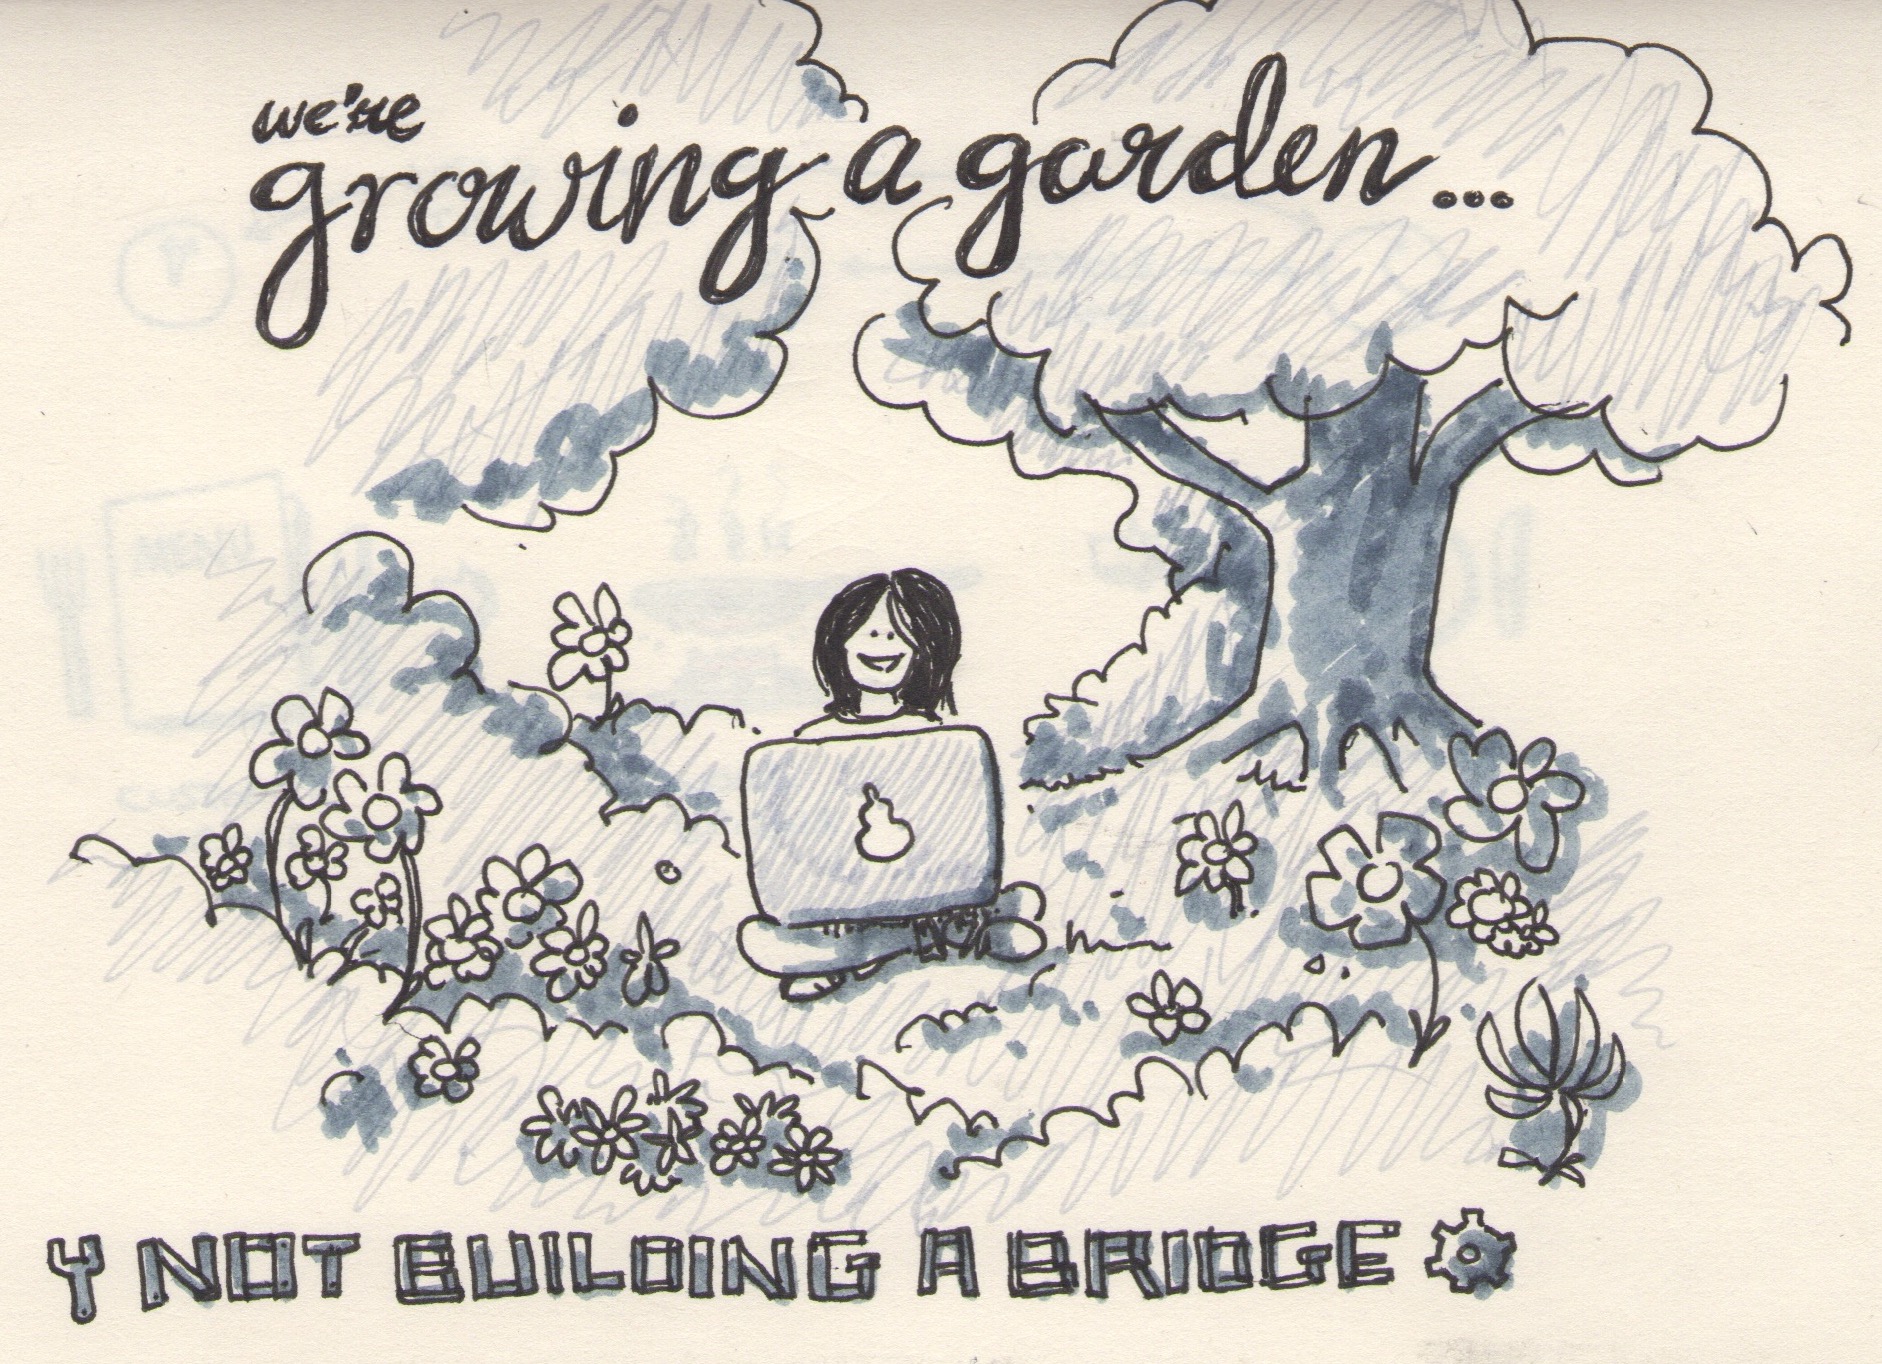 we're
growing a garden...
NOT BUILDING A BRIDGE
MENU